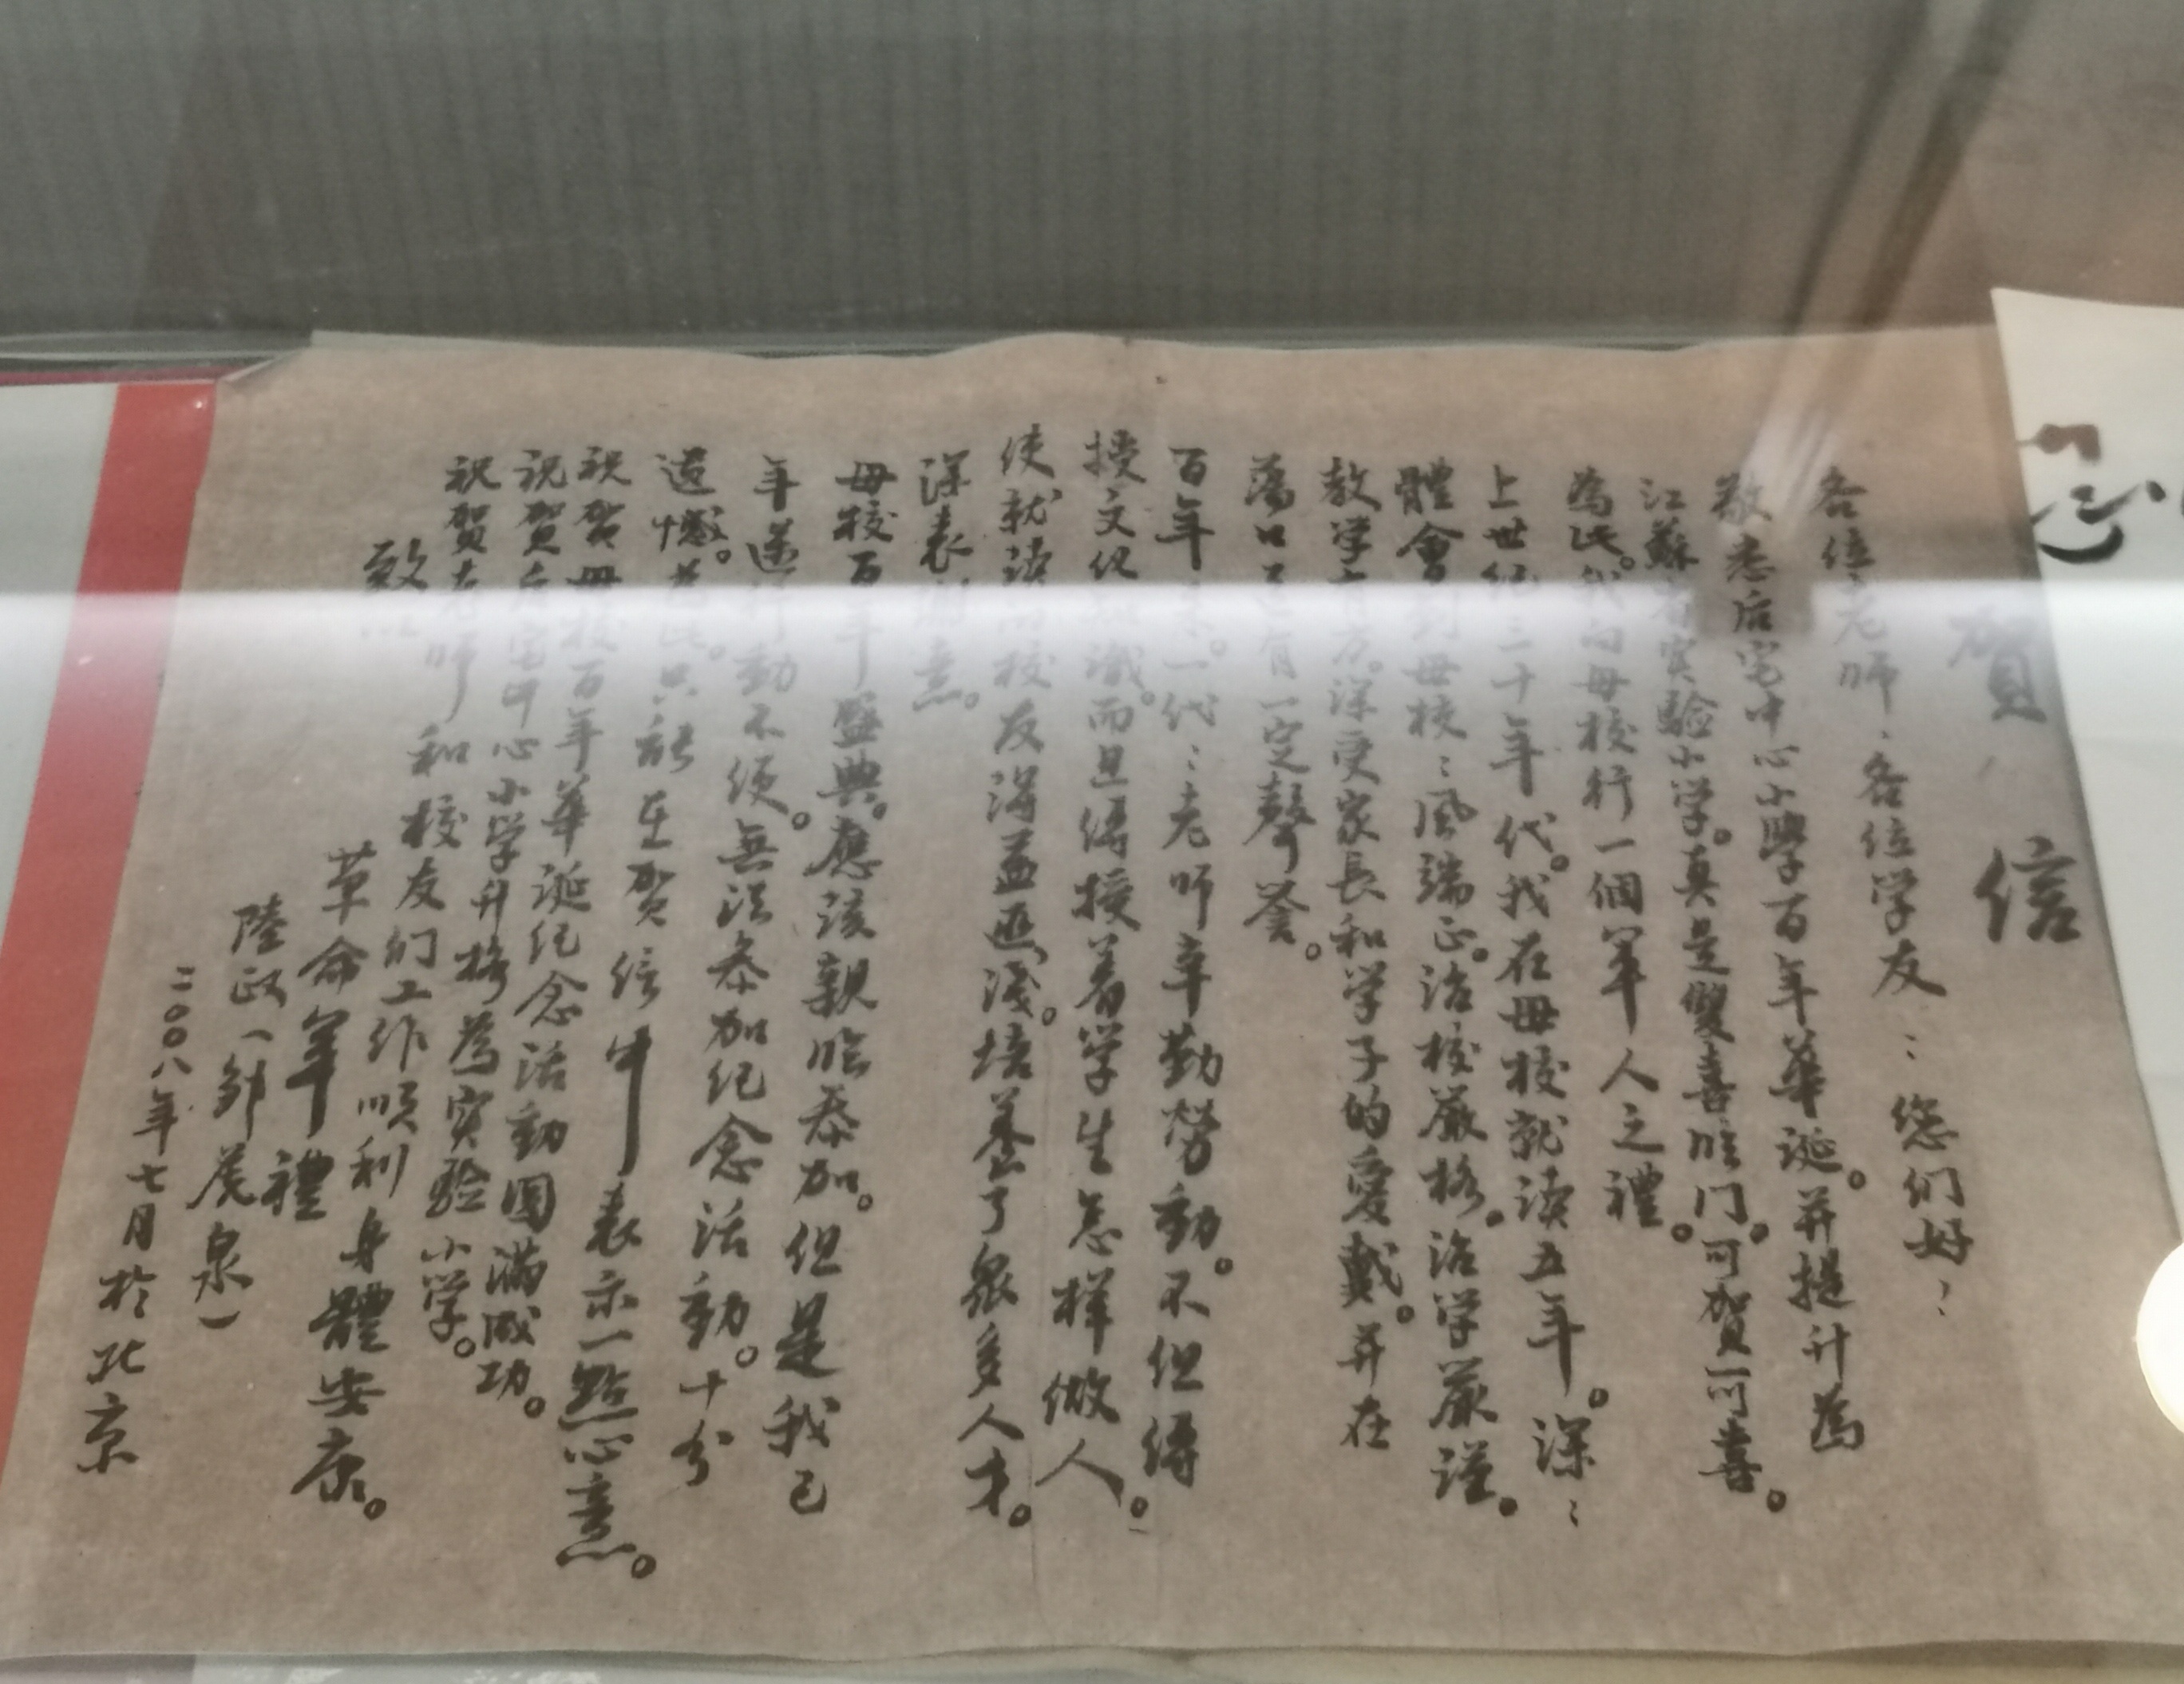 賀信
各位老师、各位学友：您们好！
敬悉后宅中心小學百年華诞。并提升為
江蘇省实验小学。真是雙喜临门。可贺可喜。
為此。我向母校行一個军人之禮。
上世纪三十年代。我在母校就读五年。深：
體會到母校：风端正。治校嚴格。治学嚴谨。
教学有方。深受家長和学子的爱戴。并在
荡口 有一定聲誉。
百年来。一代：老师辛勤劳動。不但傳
授文化知識。而且傳授着学生怎样做人。
使就读的校友得益匪浅。培养了眾多人才。
深表謝意。
母校百年盛典。應该親临参加。但是我已
年迈行動不便。無法参加纪念活動。十分
遗憾。為此。只能在贺信中表示一點心意。
祝贺母校百年華诞纪念活動圆满成功。
祝贺后宅中心小学升格為实验小学。
祝贺老师和校友们工作顺利身體安康。
致以
革命军禮
陸政（邹 泉）
二〇〇八年七月於北京